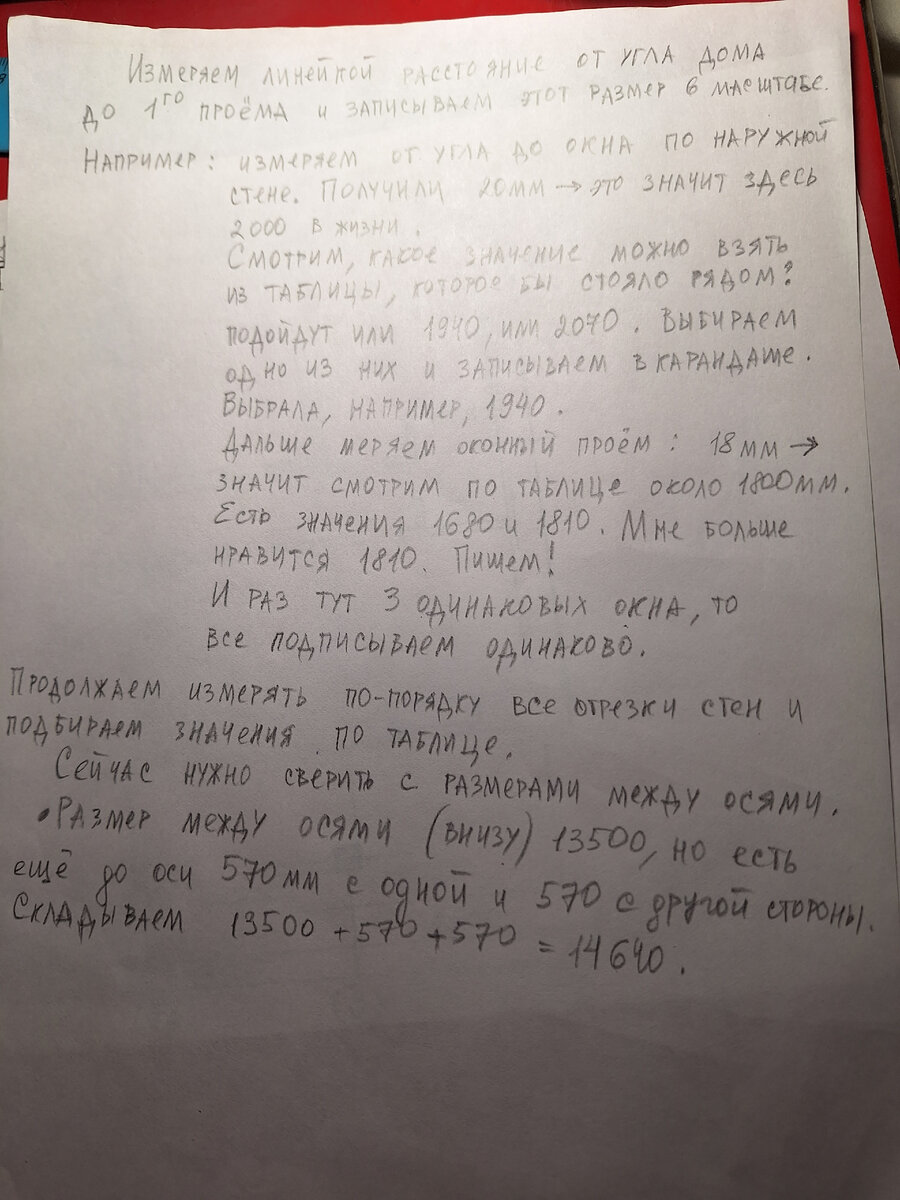 Измеряем линейкой расстояние от угла дома
до 1го проёма и записываем этот размер в масштабе.
Например: измеряем от угла до окна по наружной
стене. Получили 20мм → это значит здесь
2000 в жизни.
Смотрим, какое значение можно взять
из таблицы, которое бы стояло рядом?
подойдут или 1940, или 2070. Выбираем
одно из них и записываем в карандаше.
Выбрала, например, 1940.
Дальше меряем оконный проём: 18мм →
значит смотрим по таблице около 1800мм.
Есть значения 1680 и 1810. Мне больше
нравится 1810. Пишем!
И раз тут 3 одинаковых окна, то
все подписываем одинаково.
Продолжаем измерять по-порядку все отрезки стен и
подбираем значения по таблице.
Сейчас нужно сверить с размерами между осями.
• Размер между осями (внизу) 13500, но есть
ещё до оси 570мм с одной и 570 с другой стороны.
Складываем 13500 + 570 + 570 = 14640.